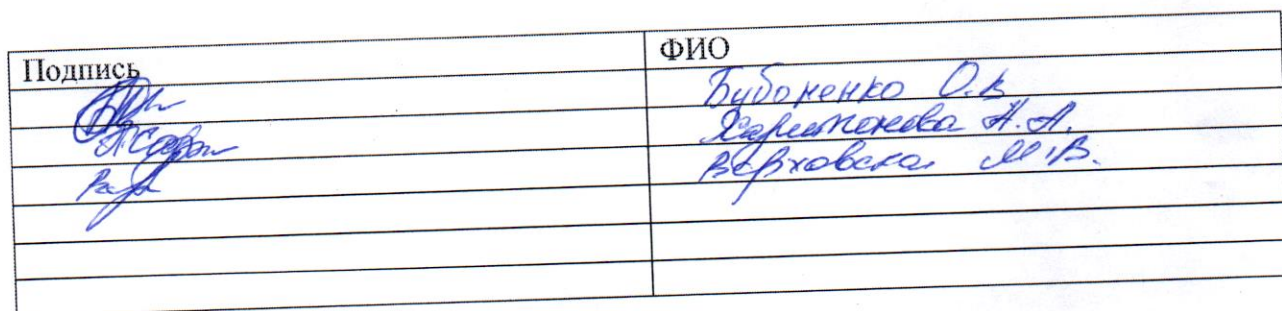 Подпись ФИО
Бубоненко О.В
Харитонова Н.А.
Верховская М.В.